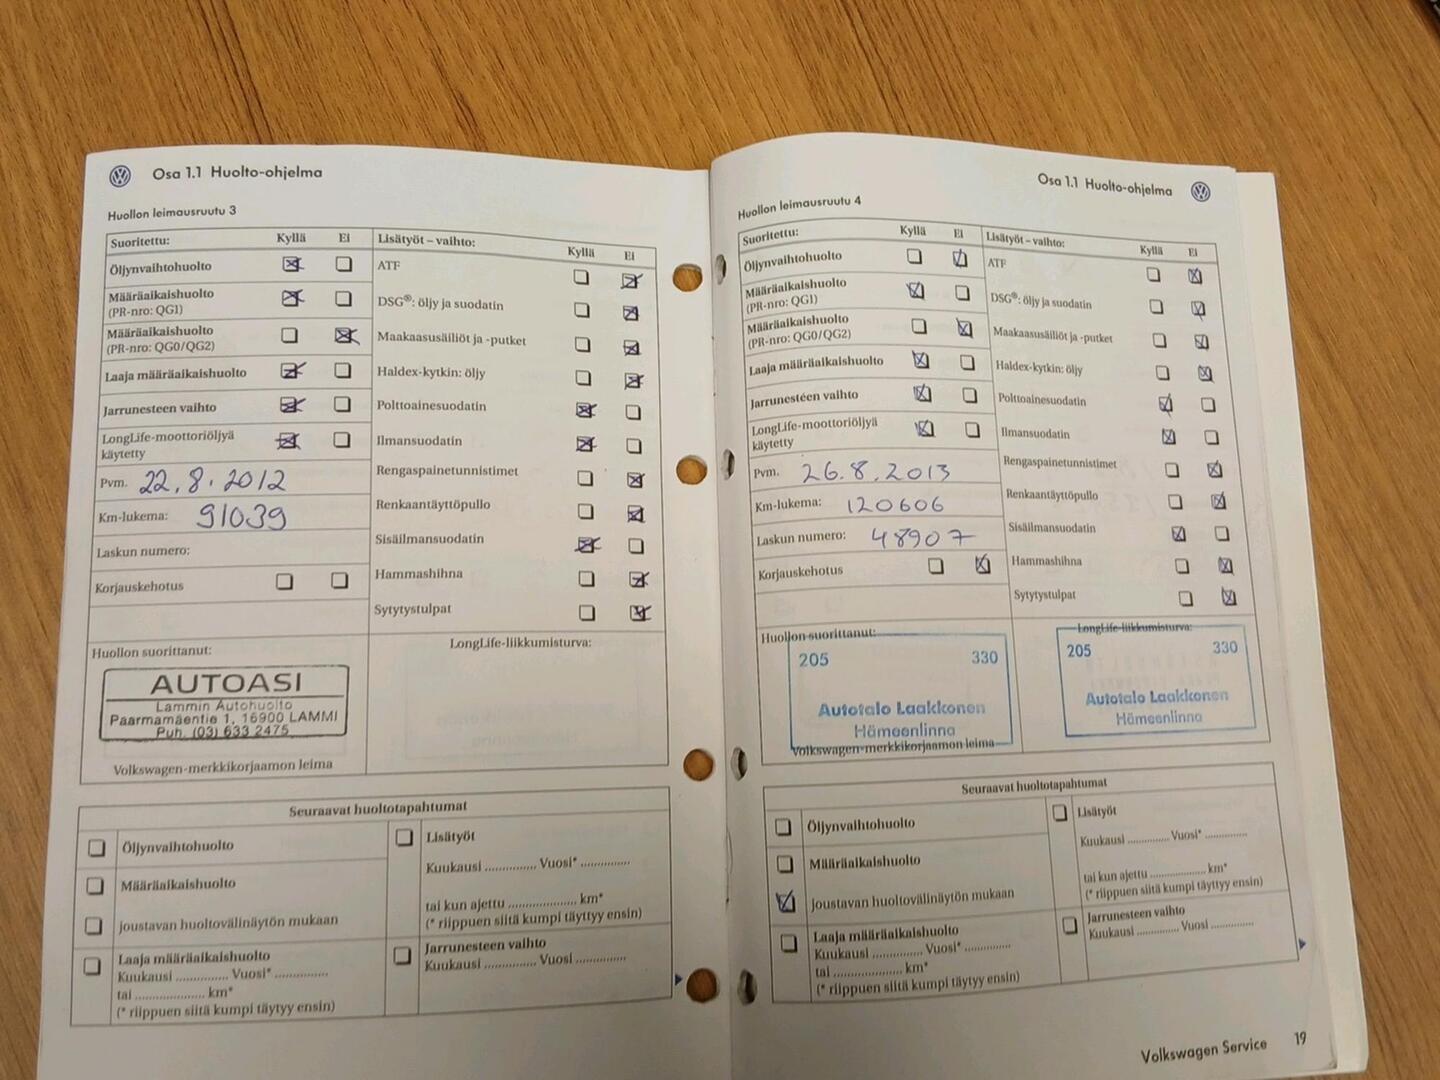 Osa 1.1 Huolto-ohjelma
Huollon leimausruutu 3
Suoritettu: Kyllä Ei
Öljynvaihtohuolto
Määräaikaishuolto
(PR-nro: QG1)
Määräaikaishuolto
(PR-nro: QG0/QG2)
Laaja määräaikaishuolto
Jarrunesteen vaihto
LongLife-moottoriöljyä
käytetty
Pvm. 22.8.2012
Km-lukema: 91039
Laskun numero:
Korjauskehotus
Lisätyöt – vaihto: Kyllä Ei
ATF
DSG®: öljy ja suodatin
Maakaasusäiliöt ja -putket
Haldex-kytkin: öljy
Polttoainesuodatin
Ilmansuodatin
Rengaspainetunnistimet
Renkaantäyttöpullo
Sisäilmansuodatin
Hammashihna
Sytytystulpat
Huollon suorittanut:
AUTOASI
Lammin Autohuolto
Paarmamäentie 1, 16900 LAMMI
Puh. (03) 633 2475
Volkswagen-merkkikorjaamon leima
LongLife-liikkumisturva:
Seuraavat huoltotapahtumat
Öljynvaihtohuolto
Määräaikaishuolto
joustavan huoltovälinäytön mukaan
Laaja määräaikaishuolto
Kuukausi .............. Vuosi* ..............
tai .................... km*
(* riippuen siitä kumpi täytyy ensin)
Lisätyöt
Kuukausi .............. Vuosi* ..............
tai kun ajettu .................... km*
(* riippuen siitä kumpi täytyy ensin)
Jarrunesteen vaihto
Kuukausi .............. Vuosi ..............
Osa 1.1 Huolto-ohjelma
Huollon leimausruutu 4
Suoritettu: Kyllä Ei
Öljynvaihtohuolto
Määräaikaishuolto
(PR-nro: QG1)
Määräaikaishuolto
(PR-nro: QG0/QG2)
Laaja määräaikaishuolto
Jarrunesteen vaihto
LongLife-moottoriöljyä
käytetty
Pvm. 26.8.2013
Km-lukema: 120606
Laskun numero: 48907
Korjauskehotus
Lisätyöt – vaihto: Kyllä Ei
ATF
DSG®: öljy ja suodatin
Maakaasusäiliöt ja -putket
Haldex-kytkin: öljy
Polttoainesuodatin
Ilmansuodatin
Rengaspainetunnistimet
Renkaantäyttöpullo
Sisäilmansuodatin
Hammashihna
Sytytystulpat
Huollon suorittanut:
205 330
Autotalo Laakkonen
Hämeenlinna
Volkswagen-merkkikorjaamon leima
LongLife-liikkumisturva:
205 330
Autotalo Laakkonen
Hämeenlinna
Seuraavat huoltotapahtumat
Öljynvaihtohuolto
Määräaikaishuolto
joustavan huoltovälinäytön mukaan
Laaja määräaikaishuolto
Kuukausi .............. Vuosi* ..............
tai .................... km*
(* riippuen siitä kumpi täytyy ensin)
Lisätyöt
Kuukausi .............. Vuosi* ..............
tai kun ajettu .................... km*
(* riippuen siitä kumpi täytyy ensin)
Jarrunesteen vaihto
Kuukausi .............. Vuosi ..............
Volkswagen Service 19